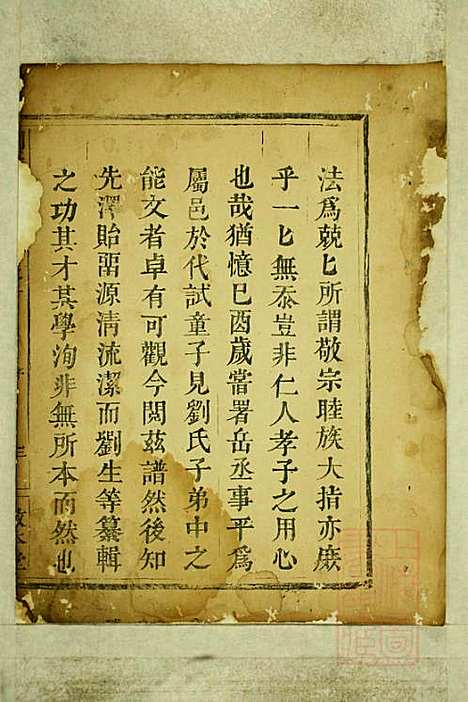 法為兢匕所謂敬宗睦族大指亦靡
乎一匕無忝豈非仁人孝子之用心
也哉猶憶巳酉歲嘗署岳丞事平為
屬邑於代試童子見劉氏子弟中之
能文者卓有可觀今閱茲譜然後知
先澤貽畱源清流潔而劉生等纂輯
之功其才其學洵非無所本而然也